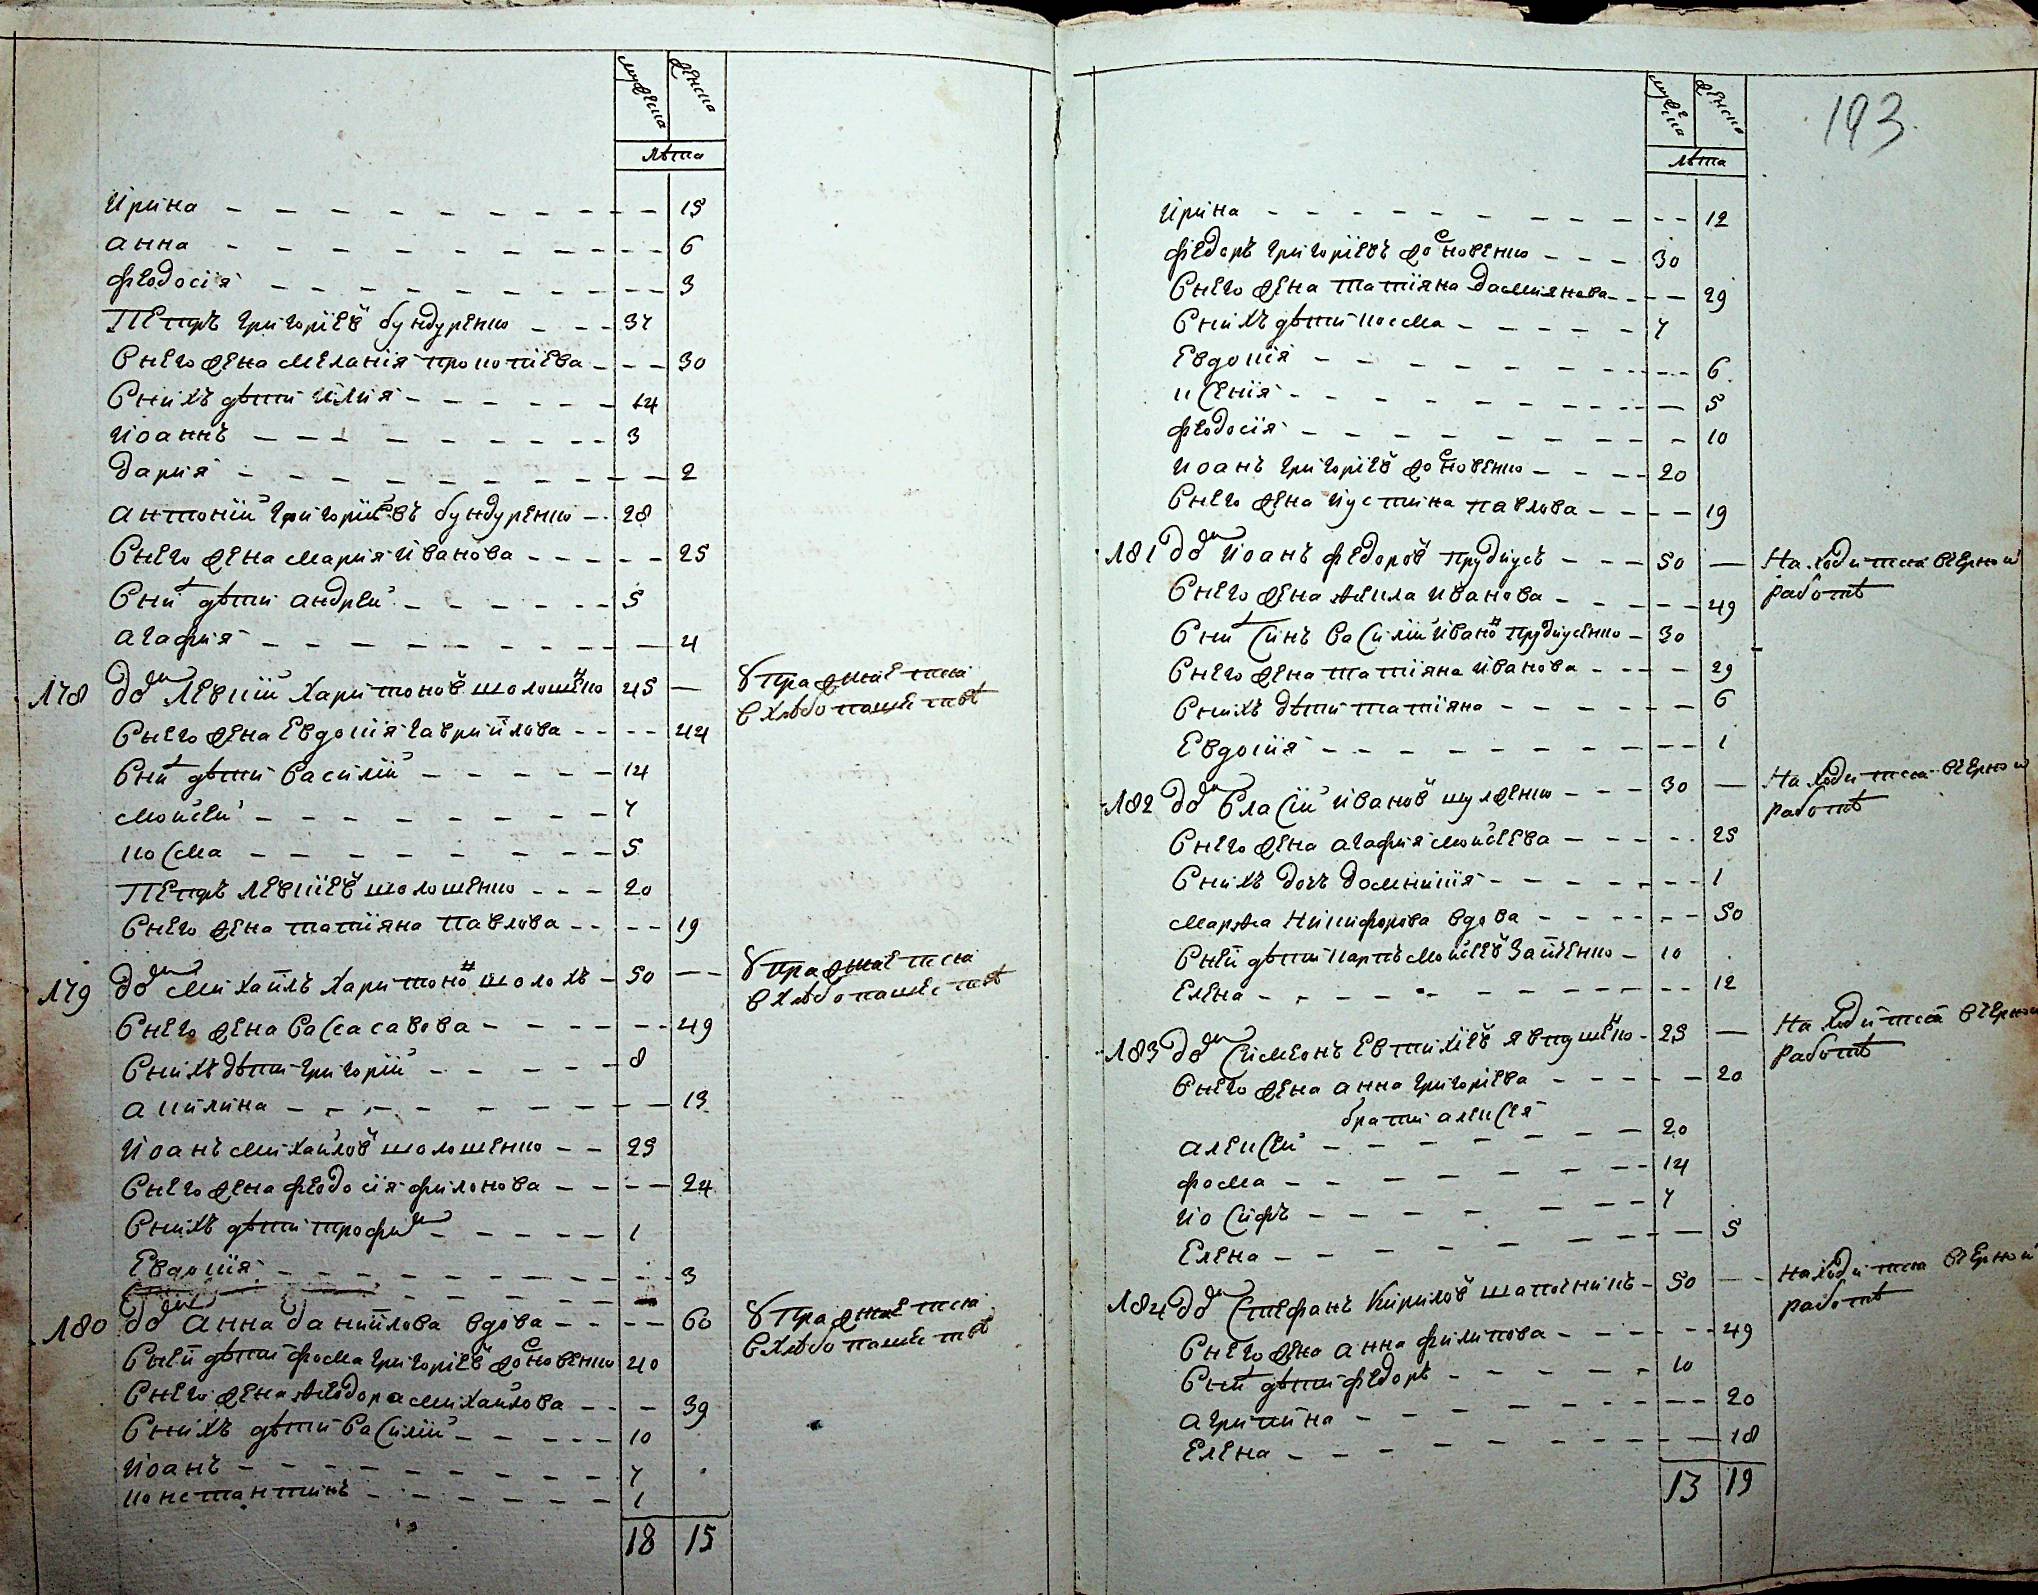 мужеска женска
лѣта
Ирина 15
анна 6
феодосія 3
Петръ григоріевъ бундуренко 37
Внего жена меланія прокопіева 30
Внихъ дѣти илия 14
Иоаннъ 3
дария 2
антоній григоріевъ бундуренко 28
Внего жена мария иванова 25
Вних дѣти андрей 5
агафия 4
178 дом Левкій харитонов шолошенко 45 — Упражняется
в хлѣбопашествѣ
Внего жена Евдокія гавриилова 44
Вних дѣти василій 14
моисей 7
косма 5
Петръ левкіев шолошенко 20
Внего жена татіяна павлова 19
179 дом михаилъ харитонов шолохъ 50 — Упражняется
в хлѣбопашествѣ
Внего жена васса савова 49
Внихъ дѣти григорій 8
акилина 13
Иоанъ михайлов шолошенко 25
Внего жена феодосія филонова 24
Внихъ дѣти трофим 1
Евдокія 3
180 дом анна даниилова вдова 60 Упражняется
в хлѣбопашествѣ
Вней дѣти фома григоріев жосновенко 40
Внего жена феодора михайлова 39
Внихъ дѣти василій 10
Иоанъ 7
константинъ 1
18 15
193
мужеска женска
лѣта
Ирина 12
федоръ григоріевъ жосновенко 30
Внего жена татіяна дамиянова 29
Внихъ дѣти косма 7
Евдокія 6
ксенія 5
феодосія 10
Иоанъ григоріев жосновенко 20
Внего жена иустина павлова 19
181 дом иоанъ федоров прудкусъ 50 — Находится вчерной
работѣ
Внего жена иванова 49
Вних синъ василій иванов прудкусенко 30
Внего жена татіяна иванова 29
Внихъ дѣти татіяна 6
Евдокія 1
182 дом власій иванов шулженко 30 — Находится вчерной
работѣ
Внего жена агафия моисеева 25
Внихъ дочъ домникія 1
марфа никифорова вдова 50
Вней дѣти карпъ моисеев запченко 10
Елена 12
183 дом симеонъ Евтихіев явтушенко 25 — Находится вчерной
работѣ
Внего жена анна григоріева 20
брати алексѣя
алексей 20
фома 14
иосифъ 7
Елена 5
184 дом стефанъ кирилов шапочникъ 50 — Находится вчерной
работѣ
Внего жена анна филипова 49
Вних дѣти федоръ 10
агрипина 20
Елена 18
13 19